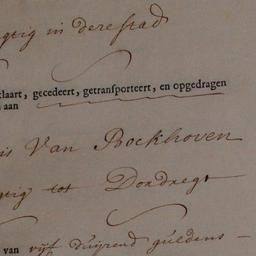 gtig in dere stad
klaart, gecedeert, getransporteert, en opgedragen
aan
is Van Bockhoven
gtig tot Dordregt
van vijf Duijzend guldens